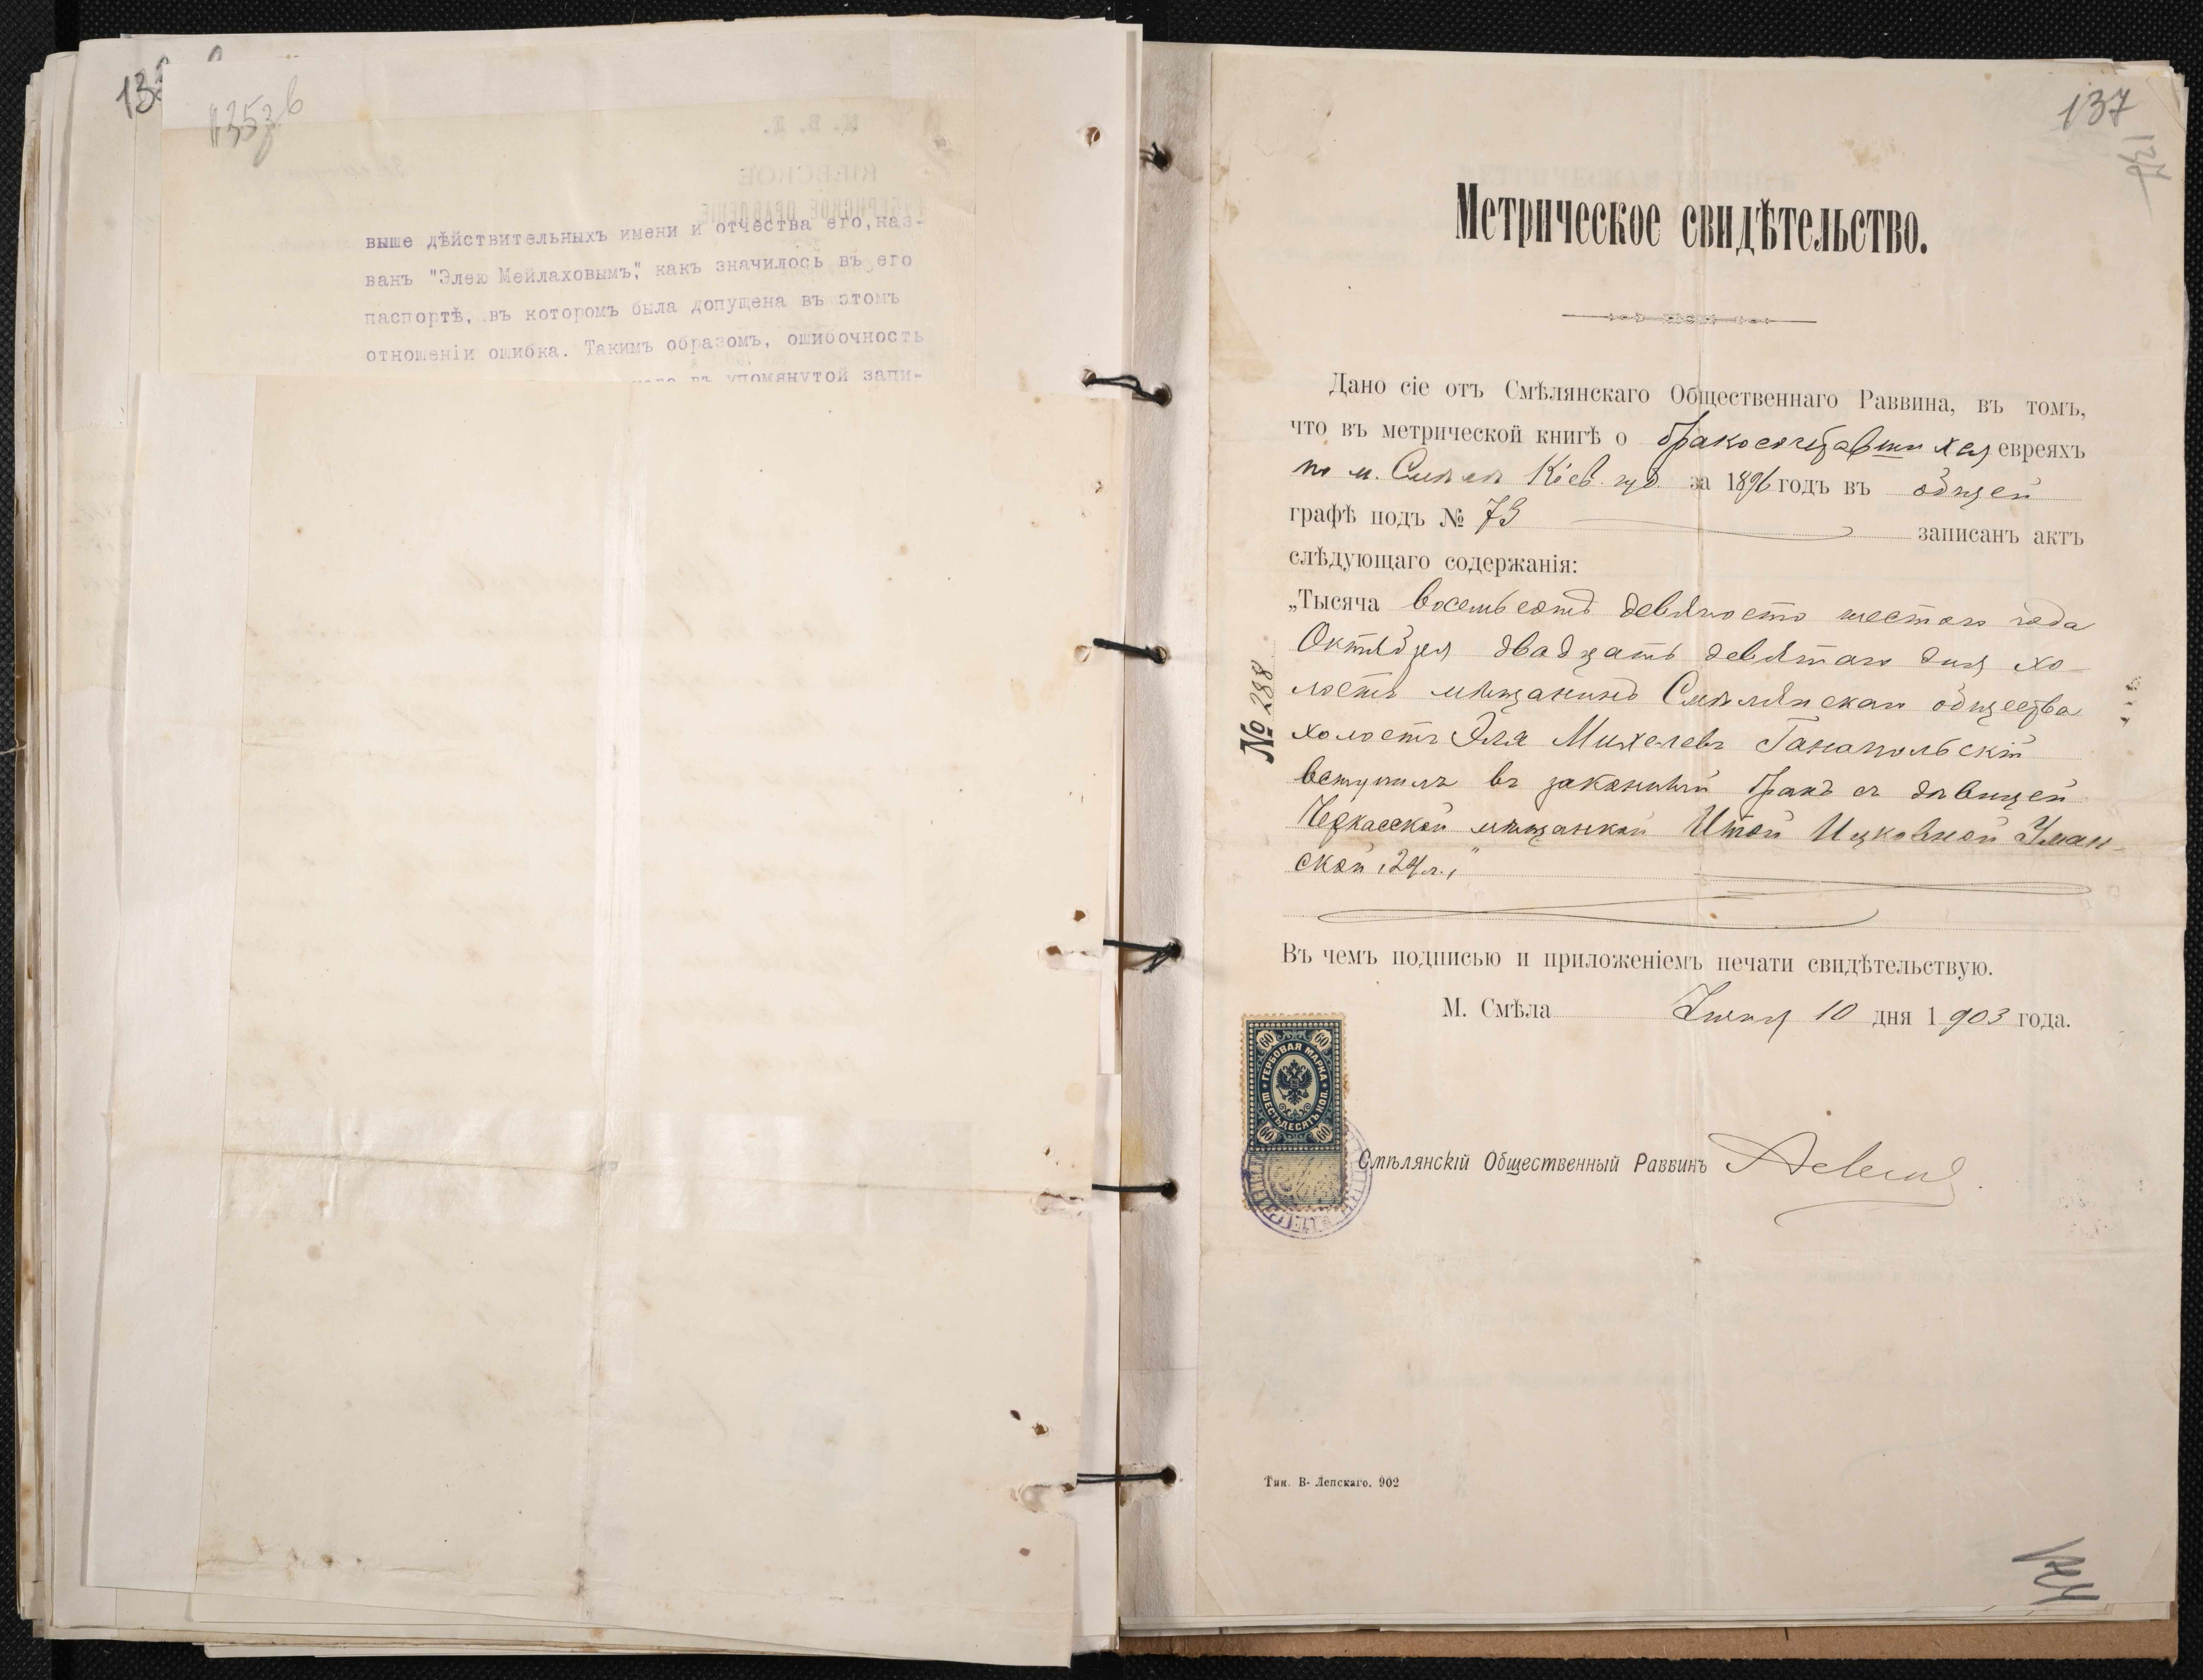 выше дѣйствительныхъ имени и отчества его, наз-
ванъ "Элею Мейлаховымъ", какъ значилось въ его
паспортѣ, въ которомъ была допущена въ этомъ
отношеніи ошибка. Такимъ образомъ, ошибочность
въ упомянутой запи-
137
Метрическое свидѣтельство.
Дано сіе отъ Смѣлянскаго Общественнаго Раввина, въ томъ,
что въ метрической книгѣ о бракосочетавшихся евреяхъ
по м. Смѣлѣ Кіев. губ. за 1896 годъ въ общей
графѣ подъ № 73 записанъ актъ
слѣдующаго содержанія:
„Тысяча восемьсотъ девяносто шестого года
Октября двадцать девятаго дня хо-
лостъ мѣщанинъ Смѣлянскаго общества
холостъ Эля Михелевъ Ганапольскій
вступилъ въ законный бракъ съ дѣвицей
Черкасской мѣщанкой Итой Ицковной Уман-
ской, 24 л."
№ 288
Въ чемъ подписью и приложеніемъ печати свидѣтельствую.
М. Смѣла 10 дня 1903 года.
60 60
ГЕРБОВАЯ МАРКА
ШЕСТЬДЕСЯТЪ КОП.
60 60
Смѣлянскій Общественный Раввинъ
Тип. В. Лепскаго. 902